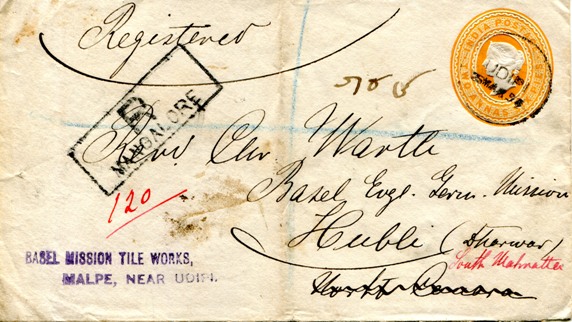 Registered
INDIA POSTAGE
TWO ANNAS SIX PIES
UDIPI
R
MANGALORE
Revd. Chr. Warth
120
Basel Engl. Germ. Mission
Hubli (Dharwar)
South Mahratta
North Canara
BASEL MISSION TILE WORKS,
MALPE, NEAR UDIPI.